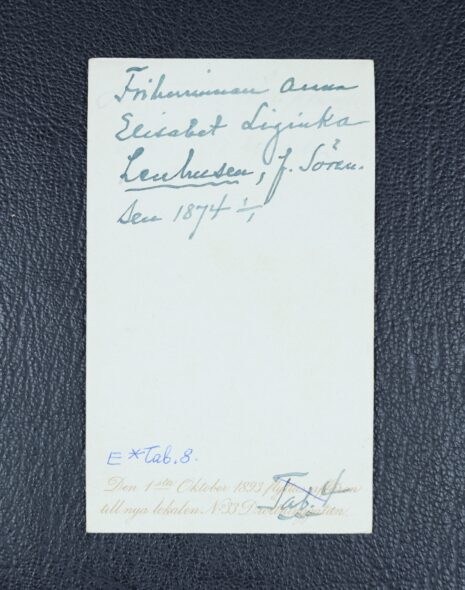 Friherrinnan Anna
Elisabet Liginka
Leuhusen, f. Sören-
sen 1874 1/1
E*Tab. 8.
Tab. 4
Den 1sta Oktober 1893
till nya lokalen, No 33